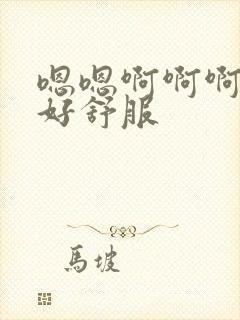 嗯嗯啊啊啊
好舒服
馬坡